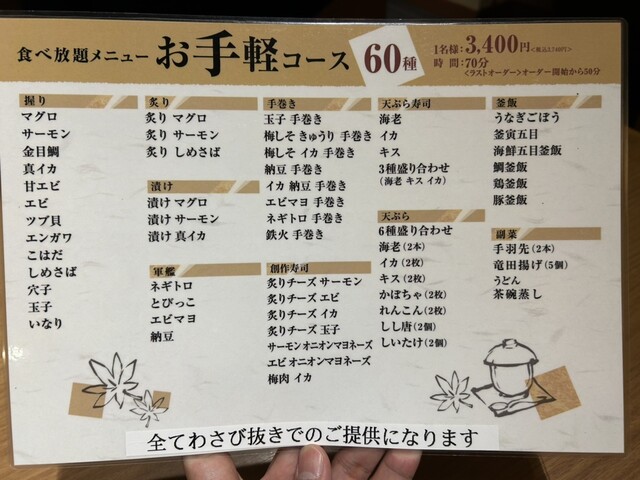 食べ放題メニュー お手軽コース 60種
1名様:3,400円<税込3,740円>
時間:70分
<ラストオーダー>オーダー開始から50分
握り
マグロ
サーモン
金目鯛
真イカ
甘エビ
エビ
ツブ貝
エンガワ
こはだ
しめさば
穴子
玉子
いなり
炙り
炙り マグロ
炙り サーモン
炙り しめさば
漬け
漬け マグロ
漬け サーモン
漬け 真イカ
軍艦
ネギトロ
とびっこ
エビマヨ
納豆
手巻き
玉子 手巻き
梅しそ きゅうり 手巻き
梅しそ イカ 手巻き
納豆 手巻き
イカ 納豆 手巻き
エビマヨ 手巻き
ネギトロ 手巻き
鉄火 手巻き
創作寿司
炙りチーズ サーモン
炙りチーズ エビ
炙りチーズ イカ
炙りチーズ 玉子
サーモンオニオンマヨネーズ
エビ オニオンマヨネーズ
梅肉 イカ
天ぷら寿司
海老
イカ
キス
3種盛り合わせ
(海老 キス イカ)
天ぷら
6種盛り合わせ
海老(2本)
イカ(2枚)
キス(2枚)
かぼちゃ(2枚)
れんこん(2枚)
しし唐(2個)
しいたけ(2個)
釜飯
うなぎごぼう
釜寅五目
海鮮五目釜飯
鯛釜飯
鶏釜飯
豚釜飯
副菜
手羽先(2本)
竜田揚げ(5個)
うどん
茶碗蒸し
全てわさび抜きでのご提供になります